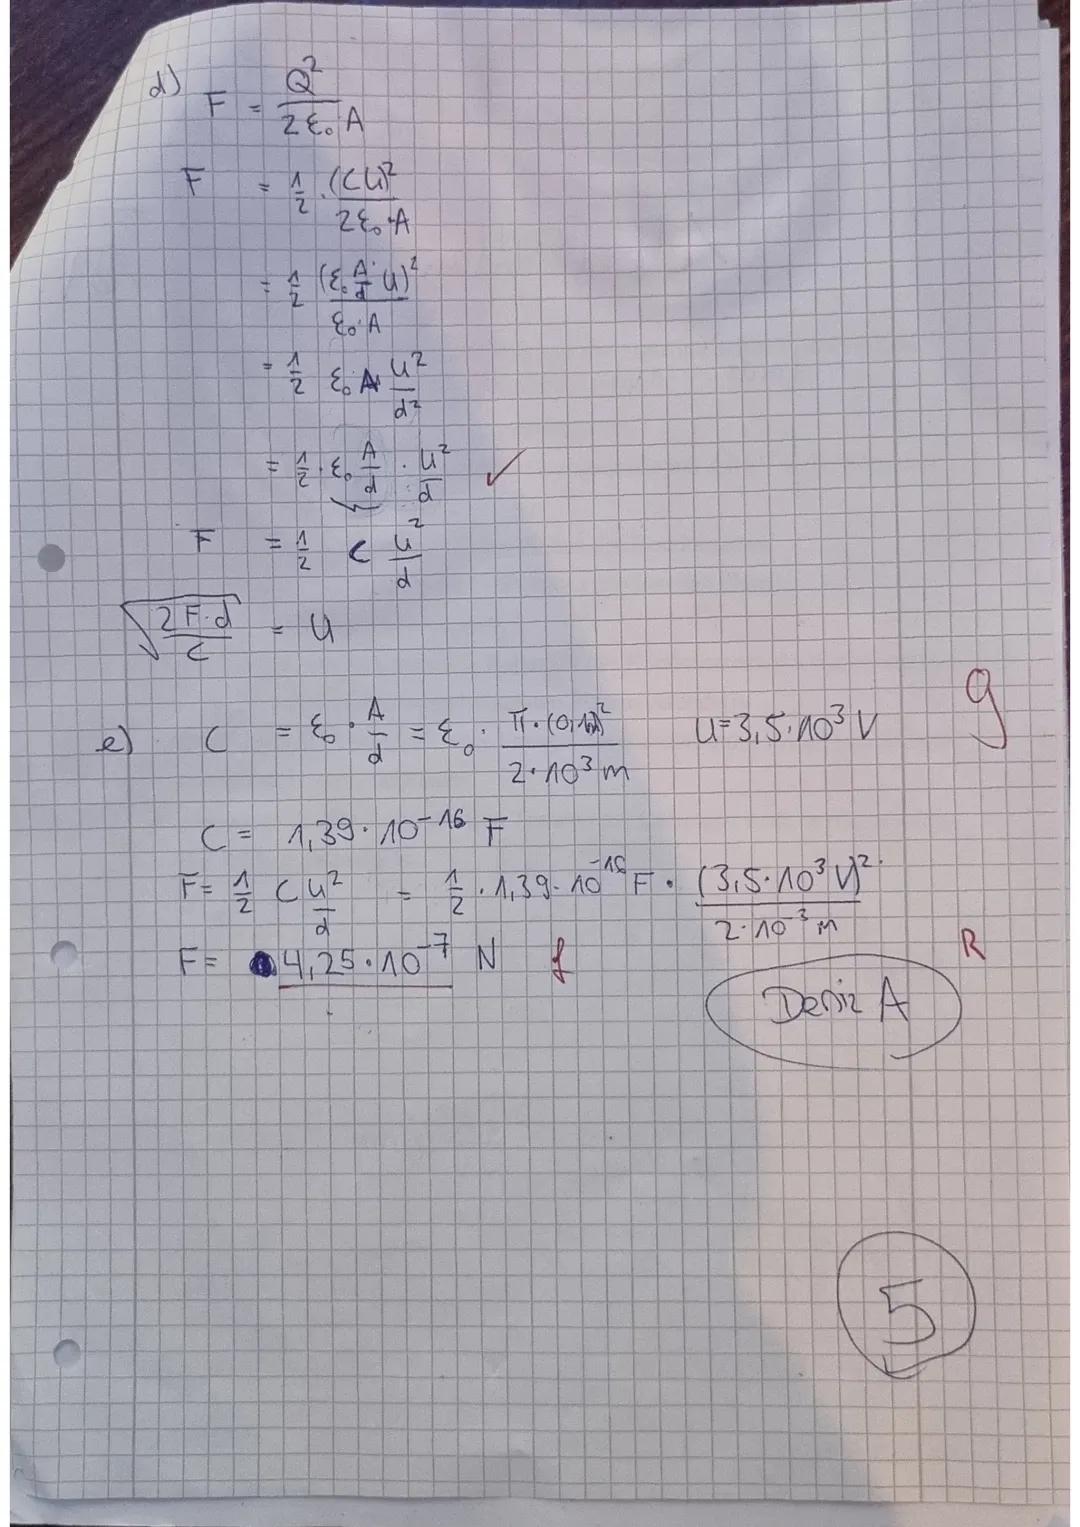 d) F = Q²/(2ε₀A)
F = 1/2 · (CU)²/(2ε₀·A)
= 1/2 (ε₀ A/d · U)²/(ε₀·A)
= 1/2 ε₀ A · U²/d²
= 1/2 · ε₀ A/d · U²/d ✓
F = 1/2 C U²/d
√(2F·d/C) = U
g
e) C = ε₀ · A/d = ε₀ · π·(0,1m)²/(2·10³m) U=3,5·10³ V
C = 1,39·10⁻¹⁶ F
F = 1/2 C U²/d = 1/2 · 1,39·10⁻¹⁶ F · (3,5·10³ V)²/(2·10⁻³ m)
F = 4,25·10⁻⁷ N f
R
Deniz A
5